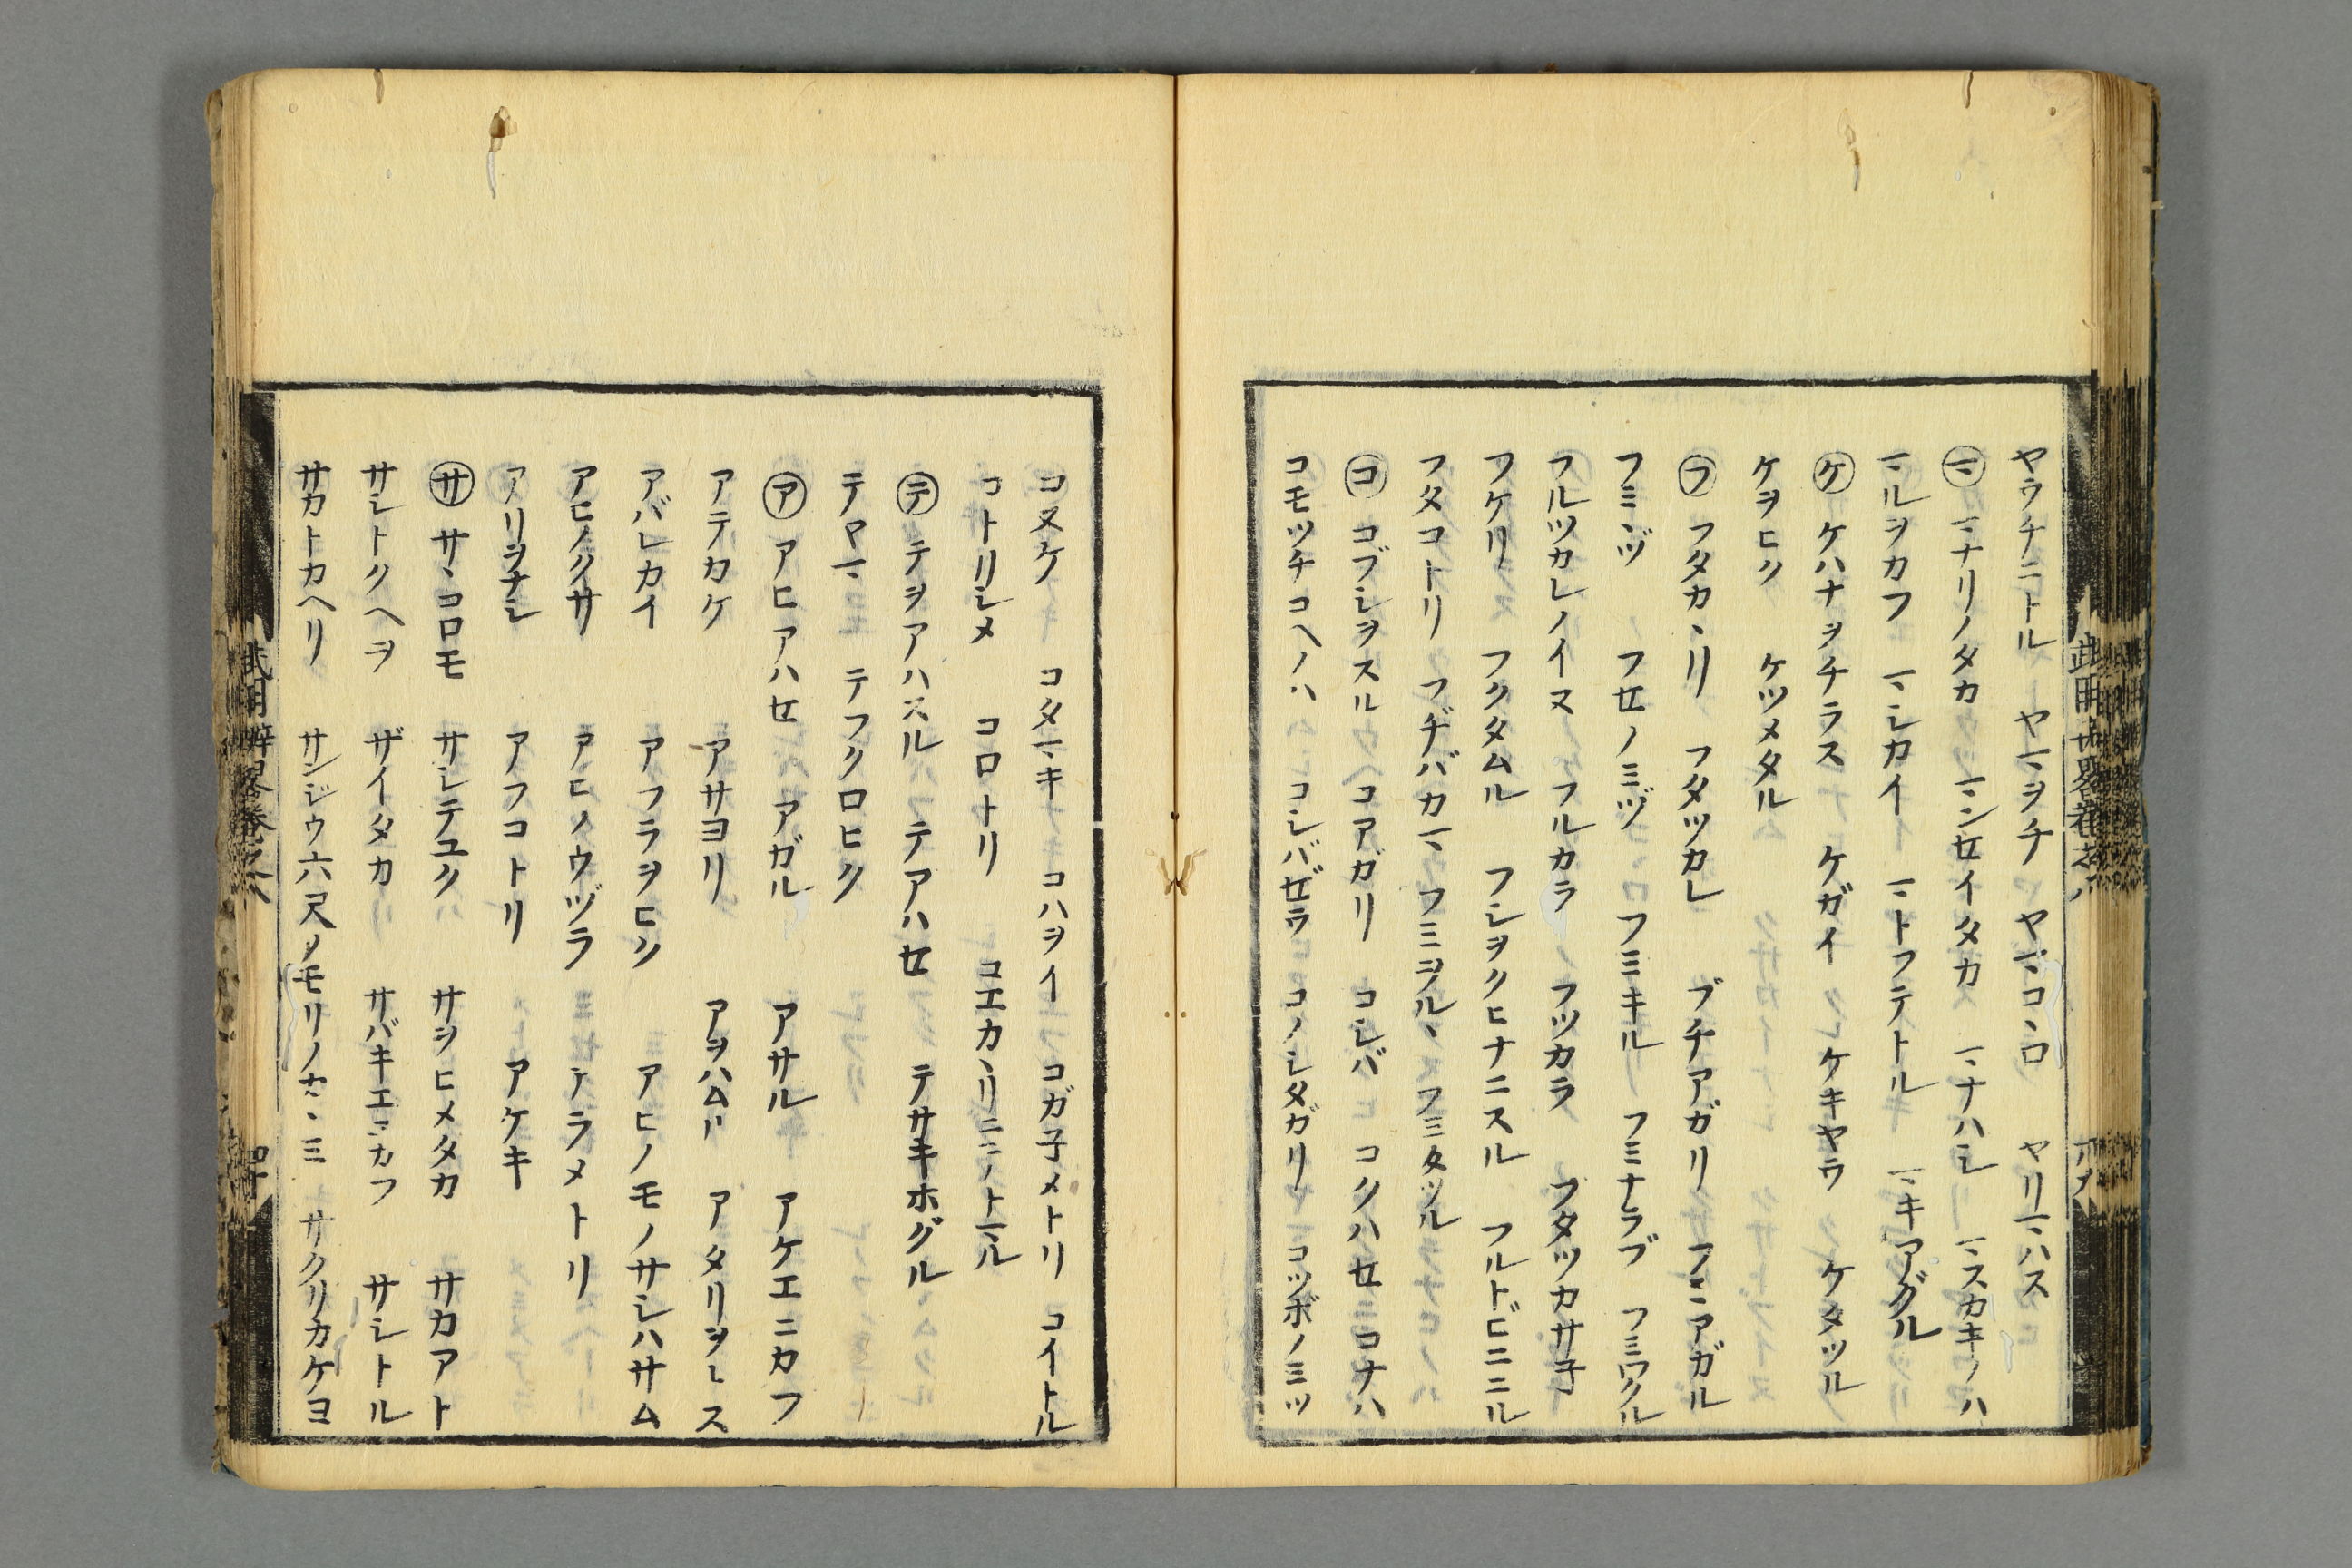 ヤウチニトル ヤマヲチ ヤマコヽロ ヤリマハス
㋮ マナリノタカ マンセイタカ マナハシ マスカキノハ
マルヲカフ マシカイ マトフテトル マキアグル
㋘ ケハナヲチラス ケガイ ケキヤウ ケタツル
ケヲヒク ケツメタル
㋫ フタカヽリ フタツカレ ブチアガリ フミアガル
フミヅ フセノミヅ フミキル フミナラブ フミワクル
フルツカレノイヌ フルカラ フツカラ フタツカサ子
フケリ フクタムル フシヲクヒナニスル フルトビニニル
フタコトリ フヂバカマ フミヲル フミタツル
㋙ コブシヲスル コアガリ コシバ コクハセ コナハ
コモツチコヘノハ コシバゼラ コノシタガリ コツボノミツ
コヌケ コタマキ コハヲイ コガ子メトリ コイトル
コトリシメ コロトリ コエカヽリニノトマル
㋢ テヲアハスル テアハセ テサキホグル
テヤマ テフクロヒク
㋐ アヒアハセ アガル アサル アケエニカフ
アテカケ アサヨリ アヲハムリ アタリヲヽス
アバレカイ アフラヲヒク アヒノモノサシハサム
アヒノクサ アヒノウヅラ アラメトリ
アリヲナシ アフコトリ アケキ
㋚ サヽコロモ サシテユク サヲヒメタカ サカアト
サシトクヘヲ ザイタカ サバキエニカフ サシトル
サカトカヘリ サンジウ六尺ノモリノカヽミ サクリカケヨ